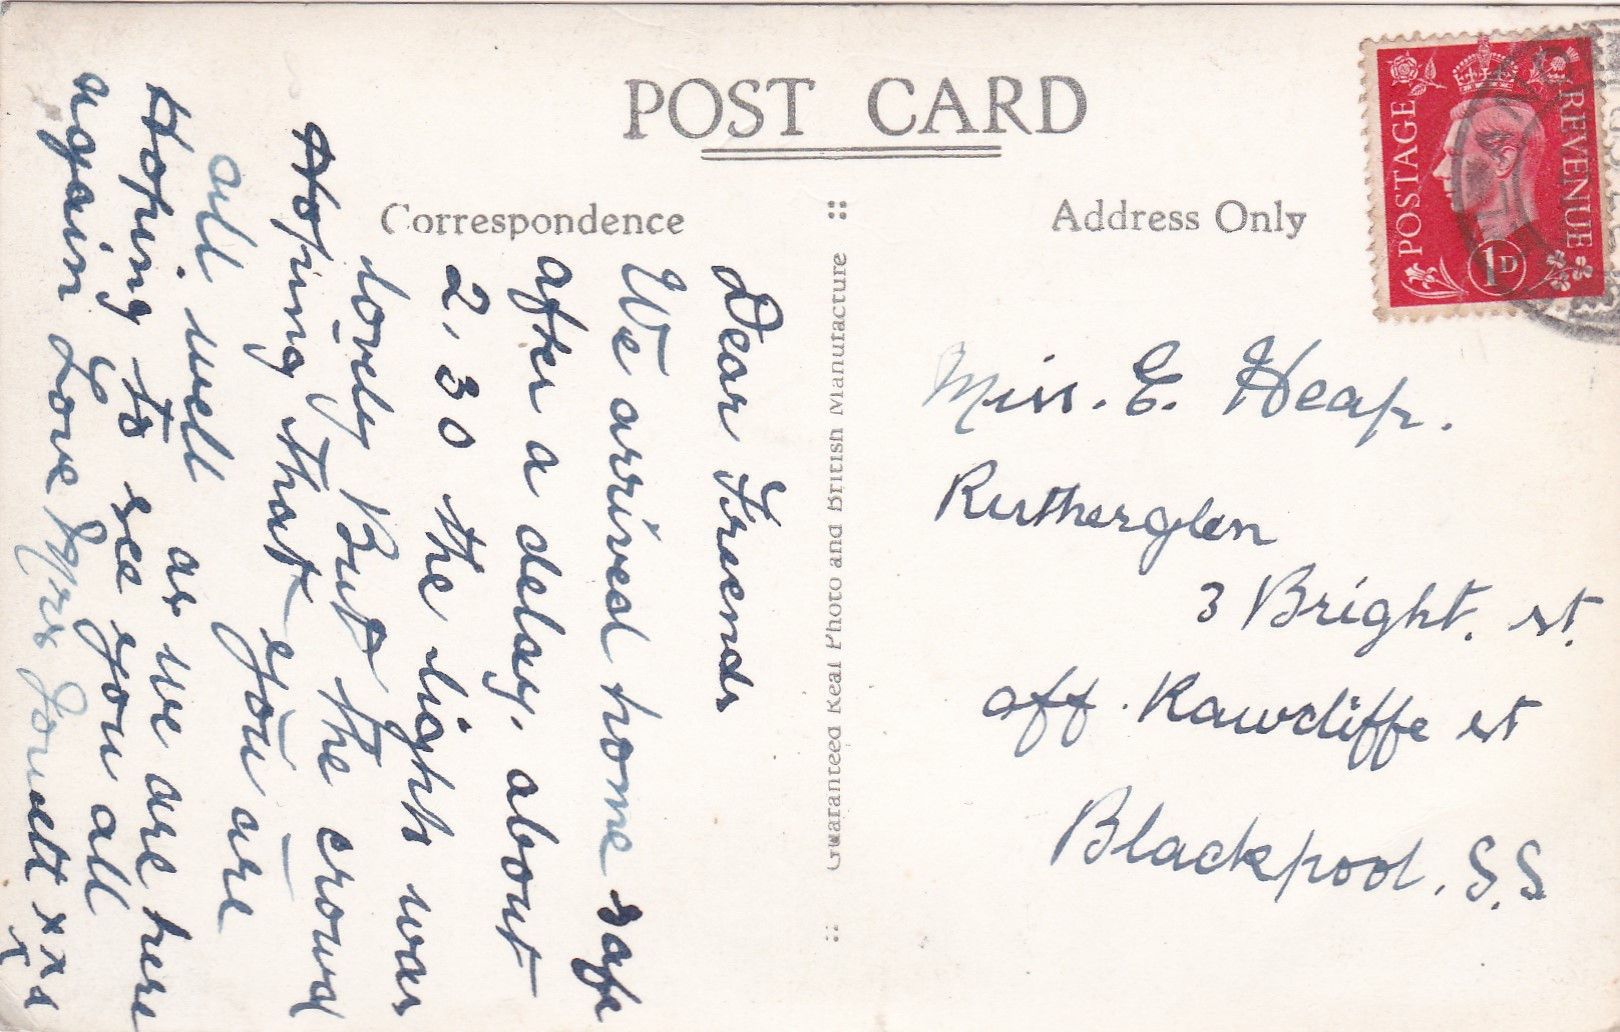 POST CARD
Correspondence
Address Only
POSTAGE
REVENUE
1D
Dear Friends
We arrived home safe
after a delay, about
2,30 the lights was
lovely But the crowd
Hoping that you are
all well as we are here
Hoping to see you all
again Love Mrs x x x
x x
Guaranteed Real Photo and British Manufacture
Miss. E. Heap.
Rutherglen
3 Bright. st.
off. Rawcliffe st
Blackpool. S.S